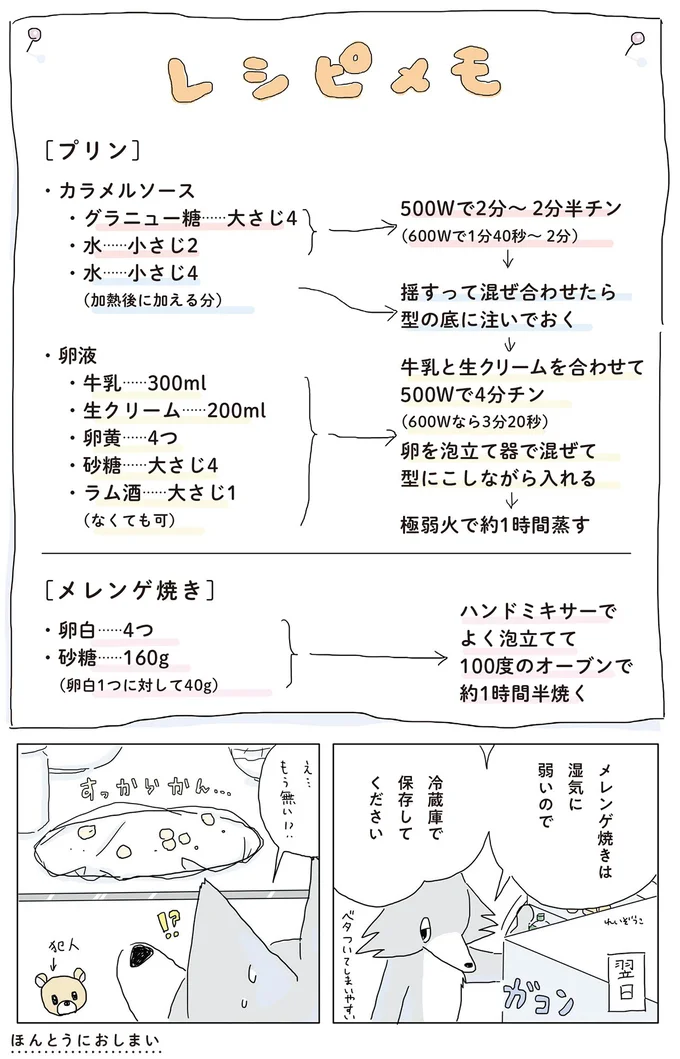 レシピメモ
[プリン]
・カラメルソース
・グラニュー糖……大さじ4
・水……小さじ2
・水……小さじ4
(加熱後に加える分)
500Wで2分〜2分半チン
(600Wで1分40秒〜2分)
揺すって混ぜ合わせたら
型の底に注いでおく
・卵液
・牛乳……300ml
・生クリーム……200ml
・卵黄……4つ
・砂糖……大さじ4
・ラム酒……大さじ1
(なくても可)
牛乳と生クリームを合わせて
500Wで4分チン
(600Wなら3分20秒)
卵を泡立て器で混ぜて
型にこしながら入れる
極弱火で約1時間蒸す
[メレンゲ焼き]
・卵白……4つ
・砂糖……160g
(卵白1つに対して40g)
ハンドミキサーで
よく泡立てて
100度のオーブンで
約1時間半焼く
メレンゲ焼きは
湿気に
弱いので
冷蔵庫で
保存して
ください
れいぞうこ
翌日
ガコン
ベタついてしまいやすい
え…
もう無い!?
すっからかん…
!?
犯人
ほんとうにおしまい